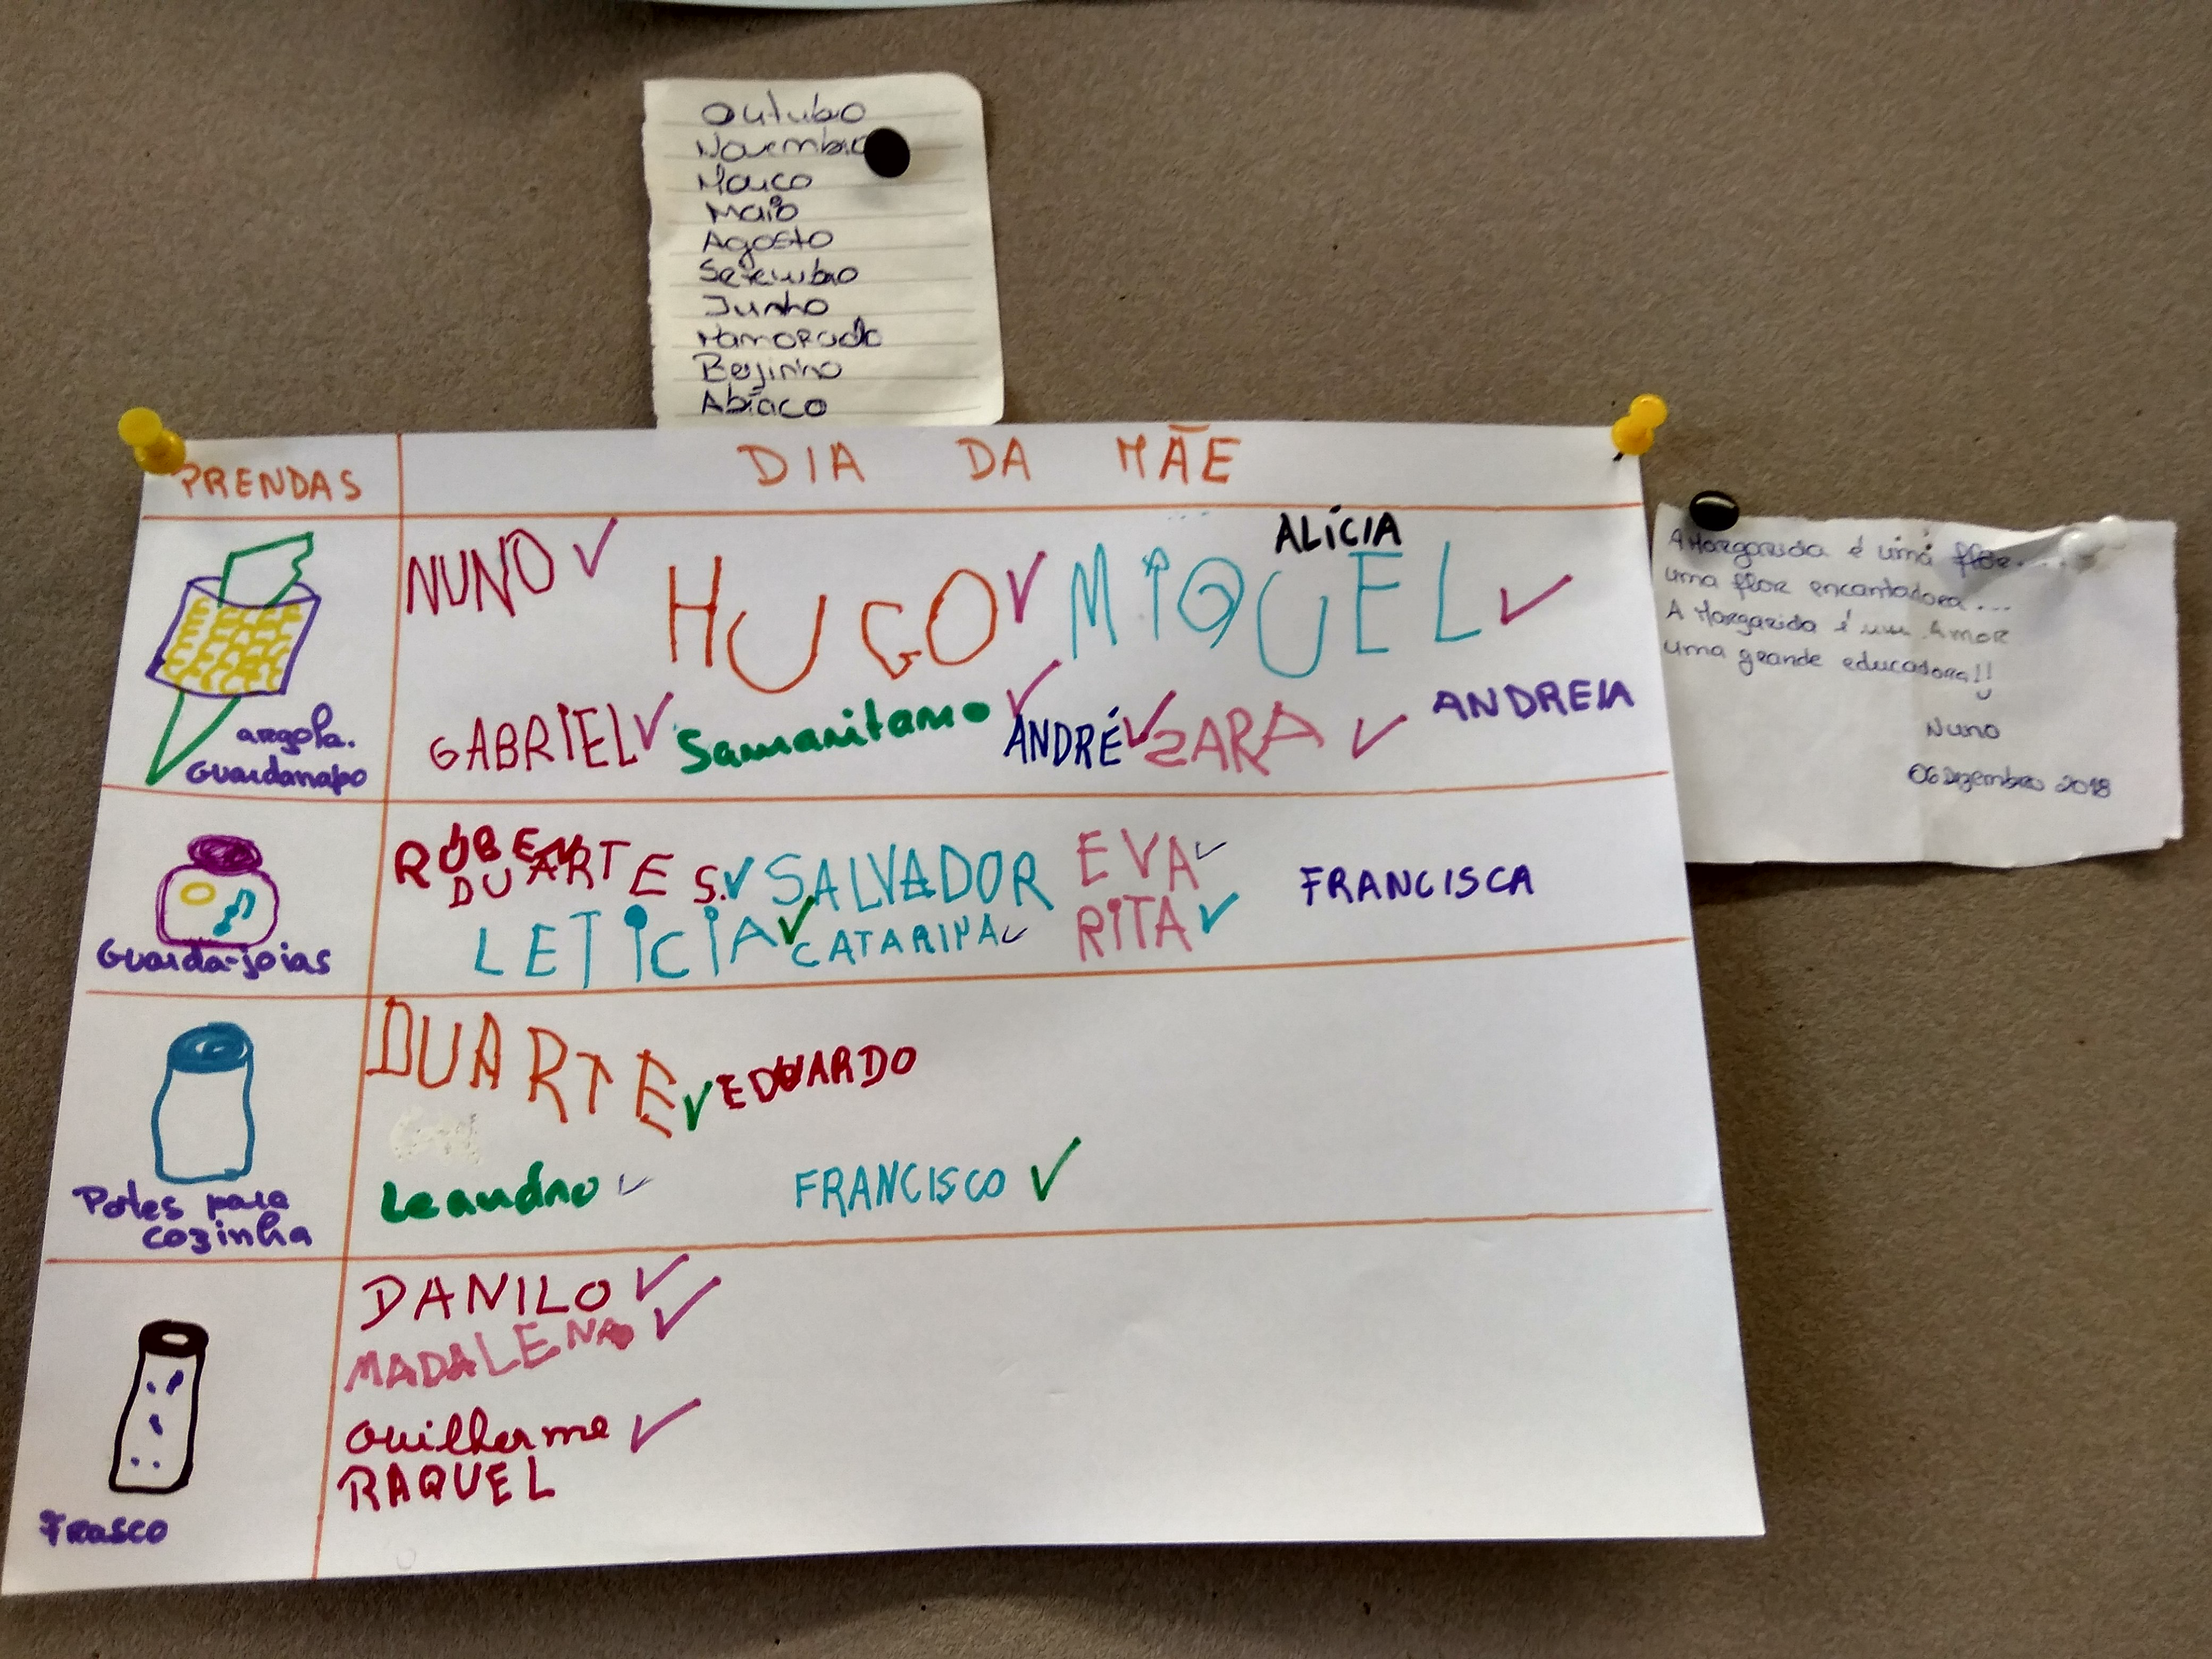 Outubro
Novembro
Março
Maio
Agosto
Setembro
Junho
Namorado
Beijinho
Abíaco
PRENDAS
DIA DA MÃE
argola.
Guardanapo
NUNO ✓ HUGO ✓ MIQUEL ✓
ALÍCIA
GABRIEL ✓ Samaritano ✓ ANDRÉ ✓ ZARA ✓ ANDREIA
Guarda-joias
RÚBEN
DUARTE S. ✓ SALVADOR EVA ✓ FRANCISCA
LETICIA ✓ CATARINA ✓ RITA ✓
Potes para
cozinha
DUARTE ✓ EDUARDO
Leandro ✓ FRANCISCO ✓
Frasco
DANILO ✓
MADALENA ✓
Guilherme ✓
RAQUEL
A Margarida é uma flor....
uma flor encantadora...
A Margarida é um Amor
uma grande educadora!!
Nuno
06 Dezembro 2018